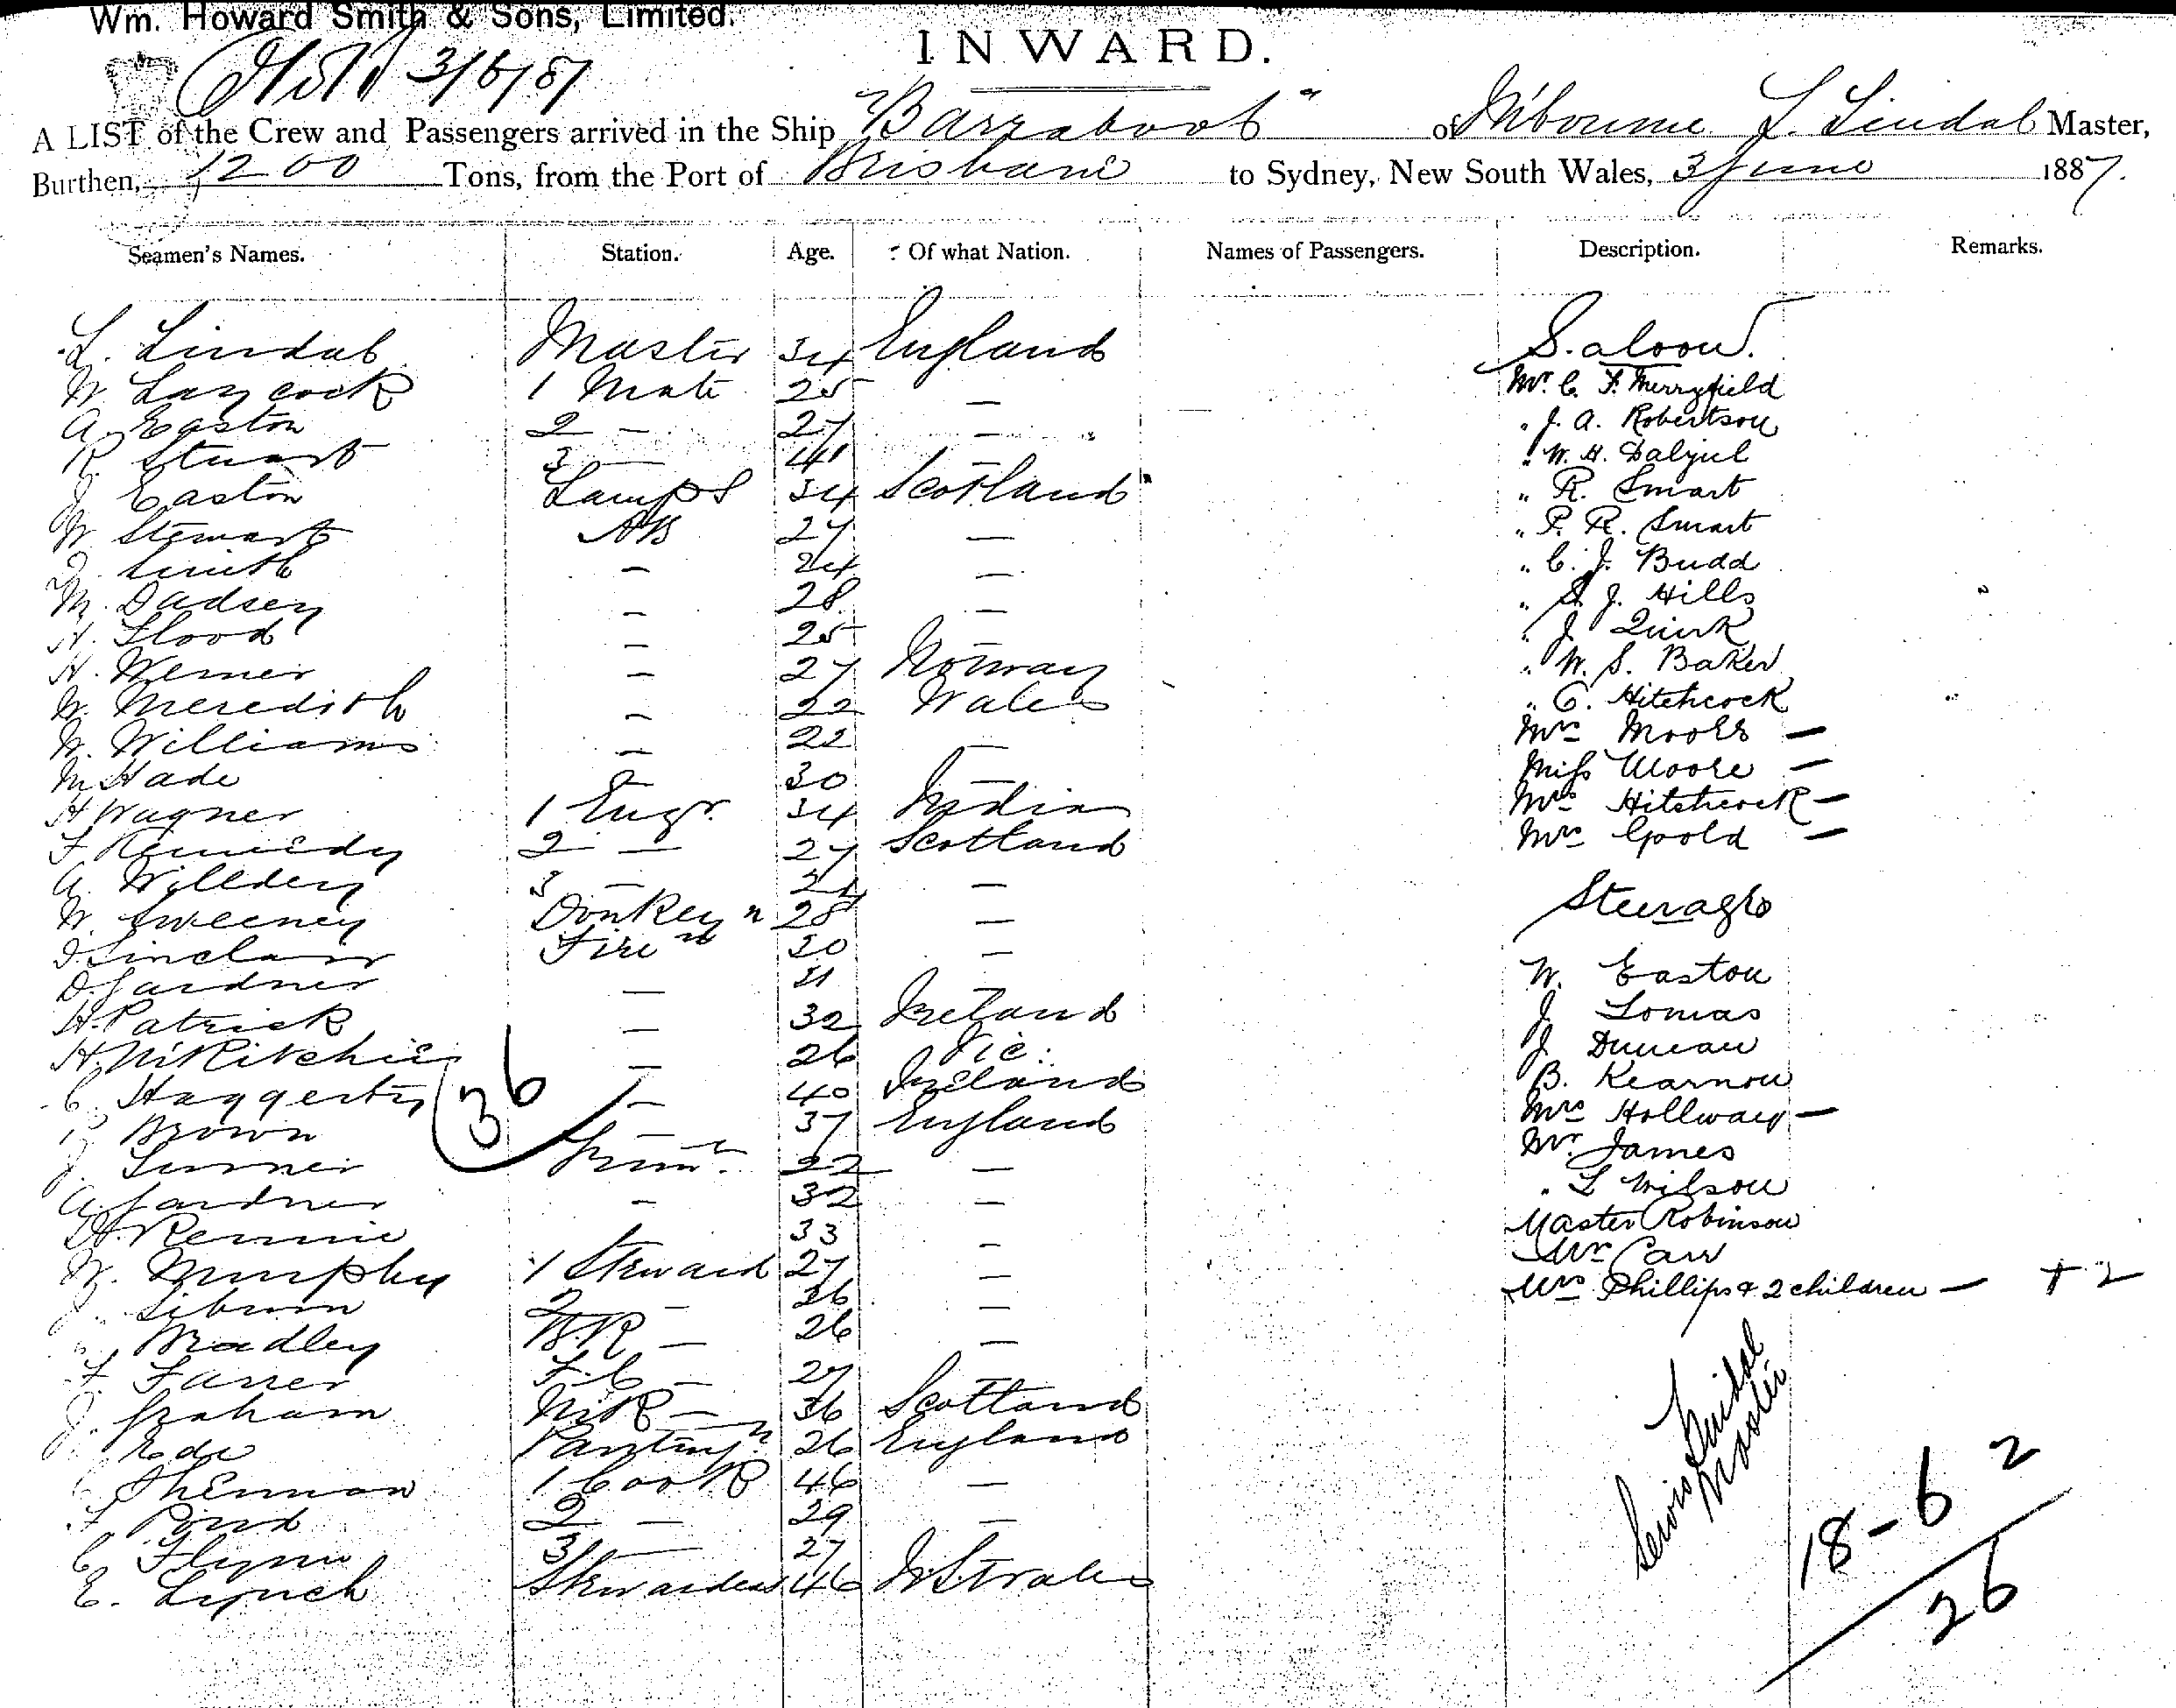 Wm. Howard Smith & Sons, Limited.
INWARD.
3/6/87
A LIST of the Crew and Passengers arrived in the Ship "Barrabool" of M'bourne L. Lindal Master,
Burthen, 1200 Tons, from the Port of Brisbane to Sydney, New South Wales, 3 June 1887.
Seamen's Names. Station. Age. Of what Nation. Names of Passengers. Description. Remarks.
L. Lindal Master 34 England Saloon.
W. Laycock 1 Mate 25 — Mr. C. F. Merryfield
A. Easton 2 — 27 — " J. A. Robertson
R. Stuart 3 — 41 — " W. H. Dalziel
J Easton Lamps 34 Scotland " R. Smart
W. Stewart AB 27 — " P. R. Smart
J. Smith — 24 — " C. J. Budd
M. Dadsey — 28 — " S. J. Hills
H. Flood — 25 — " J Quirk
H. Werner — 27 Norway " W. S. Baker
W. Meredith — 22 Wales " C. Hitchcock
W. Williams — 22 — Mrs Moore —
M Hade — 30 — Miss Moore —
H Wagner 1 Engr. 34 India Mrs Hitchcock —
F Kennedy 2 — 27 Scotland Mrs Goold —
A. Willdey 3 — 24 —
W. Sweeney Donkeyn 28 — Steerage
J. Sinclair Firen 30 —
D. Gardner — 31 — W. Easton
H. Patrick — 32 Ireland J Lomas
H. McRitchie — 26 Vic: J Duncan
C. Haggerty — 40 Ireland B. Kearnon
36
P. Brown — 37 England Mrs Hollway —
J. Turner Trimr. 22 — Mr. James
A. Gardner — 32 — " L Wilson
H. Rennie 33 — Master Robinson
W. Murphy 1 Steward 27 — Mr Carr
J. 2 — 36 — Mrs Phillips & 2 children — + 2
Bradley B.R — 26 —
F. Farrer F.C — 27
J. Graham M.R — 36 Scotland
Ede Pantryn 26 England
1 Cook 46 —
F Pond 2 — 29 —
C. Flynn 3 — 27
E. Lynch Stewardess 46 Australia
Lewis Lindal
Master
18 - 6 2
26